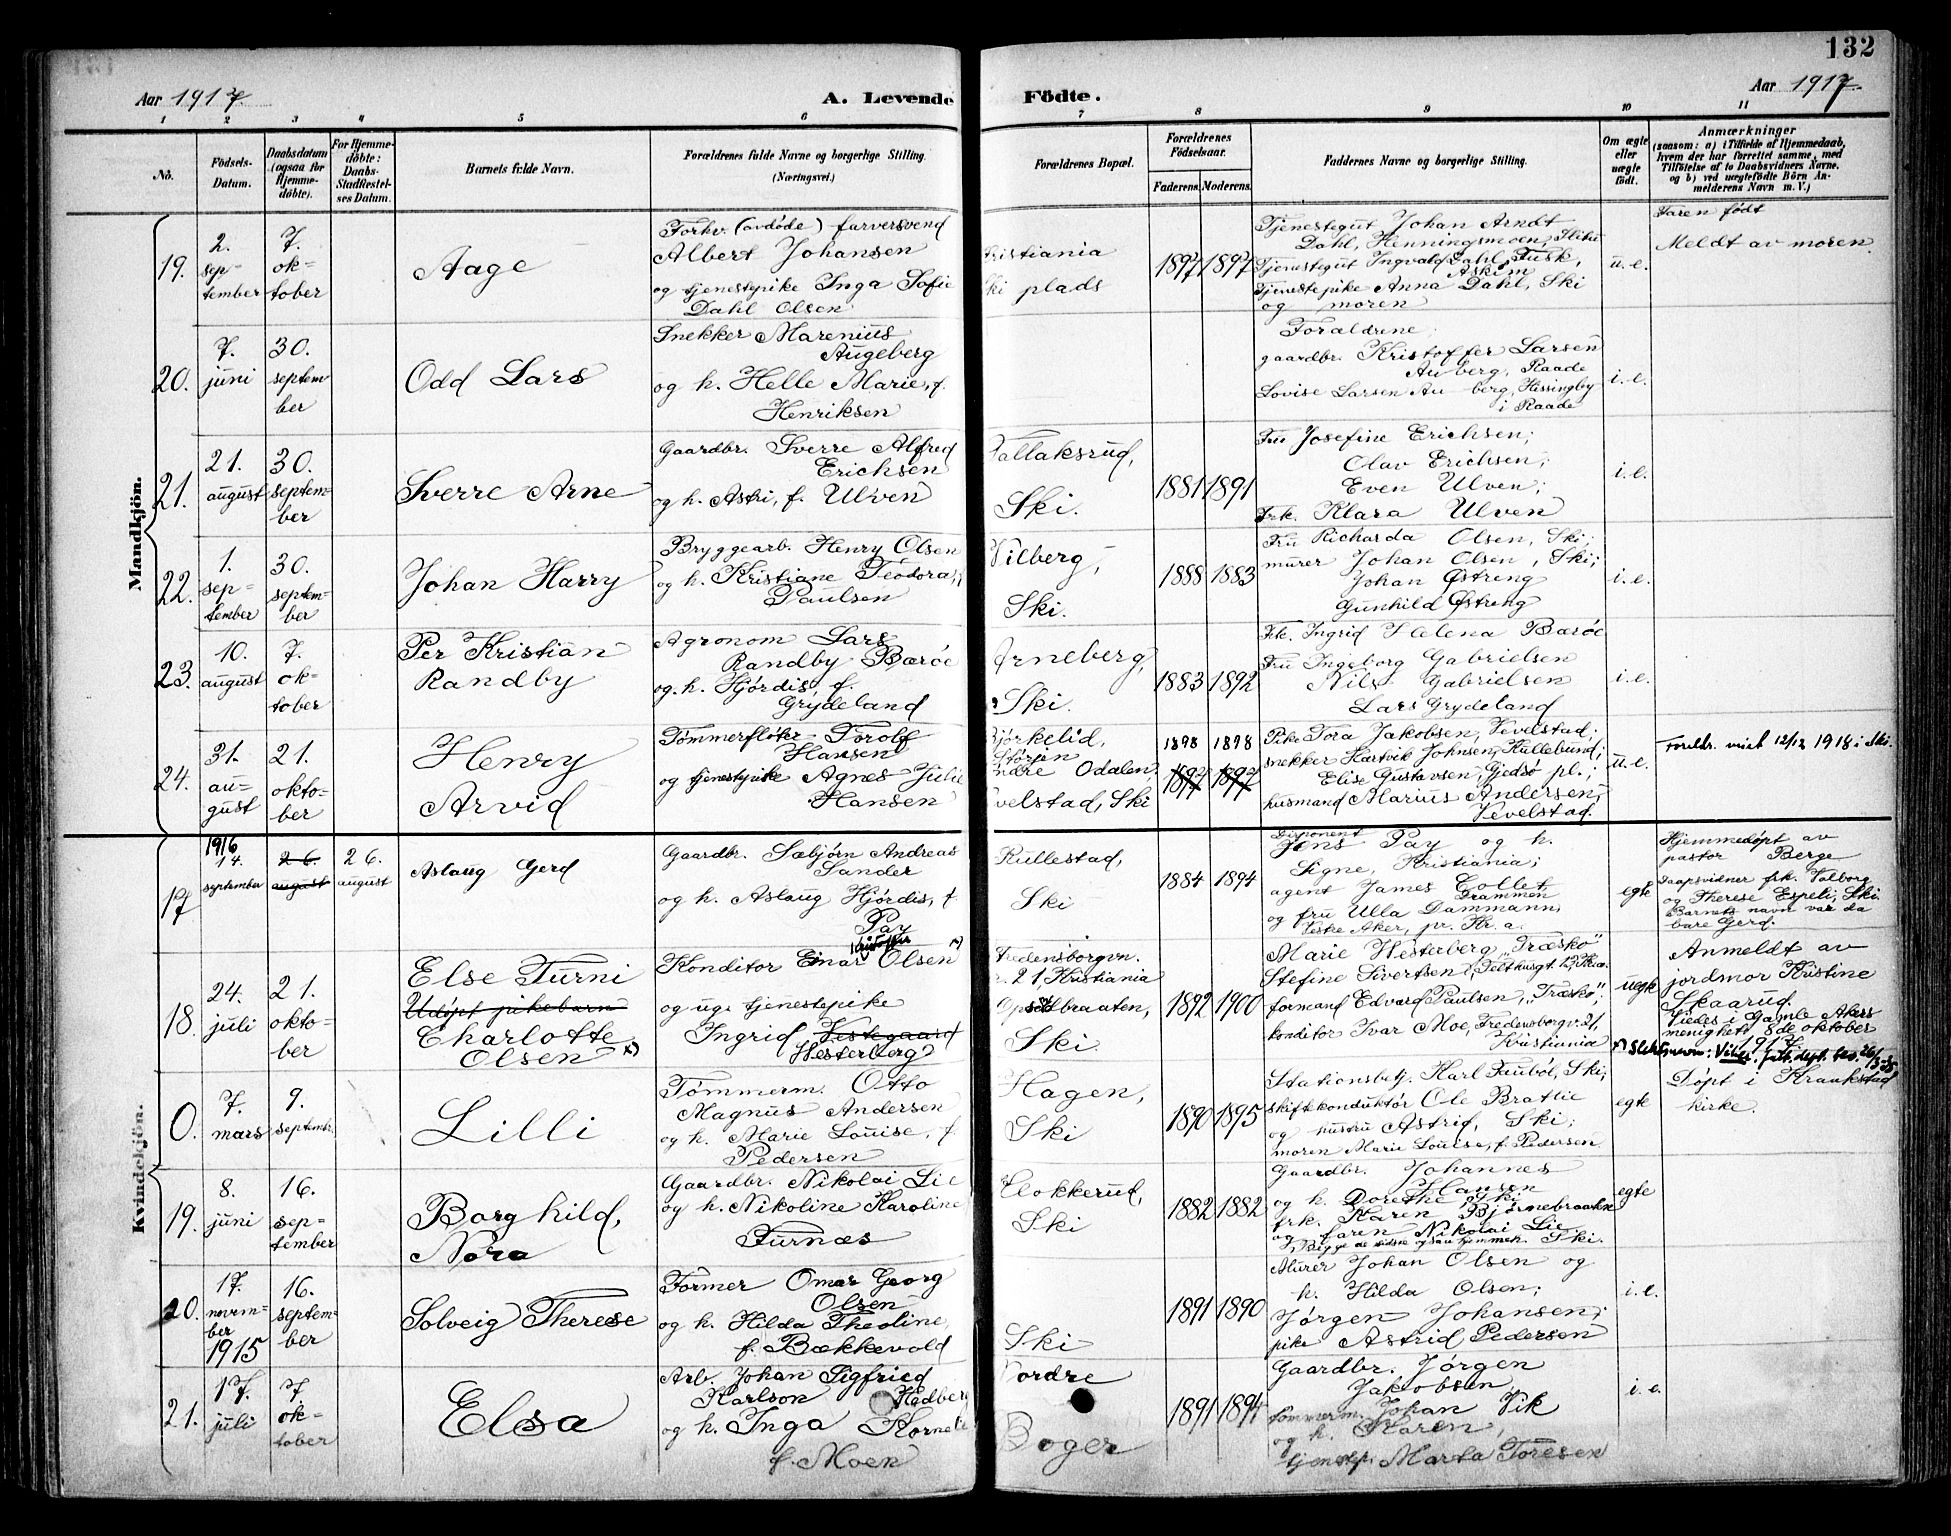 132
Aar 1917.
A. Levende Födte.
Aar 1917.
1 2 3 4 5 6 7 8 9 10 11
No.
Födsels-
Datum.
Daabsdatum
(ogsaa for
Hjemme-
döbte).
For Hjemme-
döbte:
Daabs-
Stadfæstel-
ses Datum.
Barnets fulde Navn.
Forældrenes fulde Navne og borgerlige Stilling.
(Næringsvei.)
Forældrenes Bopæl.
Forældrenes
Födselsaar.
Faderens. Moderens.
Faddernes Navne og borgerlige Stilling.
Om ægte
eller
uægte
födt.
Anmærkninger
(saasom: a) i Tilfælde af Hjemmedaab,
hvem der har forrettet samme, med
Tilföielse af to Daabsvidners Navne.
og b) ved uægtefödte Börn An-
melderens Navn m. V.)
Mandkjön.
19.
2.
sep-
tember
7.
ok-
tober
Aage
Forhv. (avdøde) farversvend
Albert Johansen
og tjenestepike Inga Sofie
Dahl Olsen
ristiania
ki plads
1897 1897
Tjenestegut Johan Arndt
Dahl, Henningsmoen,
Tjenestegut Ingvald Dahl, Tusk,
Askim
Tjenestepike Anna Dahl, Ski
og moren
u. e.
Faren født
Meldt av moren
20.
7.
juni
30.
septem-
ber
Odd Lars
Snekker Marenius
Augeberg
og h. Helle Marie, f.
Henriksen
Forældrene
gaardbr. Kristoffer Larsen
Au berg, Raade
Lovise Larsen Au berg, Missingby
i Raade
i. e.
21.
21.
august
30.
septem-
ber
Sverre Arne
Gaardbr. Sverre Alfred
Erichsen
og h. Astri, f. Ulven
allaksrud,
Ski.
1881 1891
Fru Josefine Erichsen;
Olav Erichsen;
Even Ulven;
Frk. Klara Ulven
i. e.
22.
1.
sep-
tember
30.
septem-
ber
Johan Harry
Bryggearb. Henry Olsen
og h. Kristiane Teodora, f.
Paulsen
Vilberg,
Ski.
1888 1883
Fru Richarda Olsen, Ski;
murer Johan Olsen, Ski;
Johan Østreng
Gunhild Østreng
i. e.
23.
10.
august
7.
ok-
tober
Per Kristian
Randby
Agronom Lars
Randby Barøe
og h. Hjørdis, f.
Grydeland
Arneberg,
Ski.
1883 1892
Frk. Ingrid Helena Barøe
Fru Ingeborg Gabrielsen
Nils Gabrielsen
Lars Grydeland
i. e.
24.
31.
au-
gust
21.
okto-
ber
Henry
Arvid
Tømmerfløter Torolf
Hansen
og tjenestepike Agnes Julie
Hansen
Bjørkelid,
Størjen
ndre Odalen.
velstad, Ski
1898 1898
1897 1897
Pike Tora Jakobsen, Vevelstad;
snekker Hartvik Johnsen, Kullebund;
Elise Gustavsen, Gjedsø pl.;
husmand Marius Andersen,
Vevelstad.
u. e.
Foreldr. viet 12/12 1918 i Ski.
Kvindekjön.
17
1916
14.
september
26.
august
26.
august
Aslaug Gerd
Gaardbr. Sæbjørn Andreas
Sander
og h. Aslaug Hjørdis, f
Pay
Kullestad,
Ski
1884 1894
Disponent
Jens Pay og h.
Signe, Kristiania;
agent James Collet
Drammen
og fru Ulla Dammann,
Vestre Aker, pr. Kr.a.
egte
Hjemmedøpt av
pastor Berge
Daapsvidner frk. Valborg
og Therese Espeli, Ski.
Barnets navn var da
bare Gerd.
18.
24.
juli
21.
okto-
ber
Else Turni
Udøpt pikebarn
Charlotte
Olsen x)
Kristoffer
Konditor Einar Olsen x)
og ug. tjenestepike
Ingrid Vestegaard
Hesterberg
Fredensborgvn.
21, Kristiania
Opsalbraaten,
Ski
1892 1900
Marie Hesterberg, "Træskø"
Stefine Sivertsen, Telthusgt. 12, Kr.a.
formand Edvard Paulsen, "Træskø";
konditor Ivar Moe, Fredensborgv. 21,
Kristiania
uegte
Anmeldt av
jordmor Kristine
Skaarud.
Viedes i Gamle Akers
menighet 8de oktober
1917.
x) Slektsnavn:
0.
7.
mars
9.
septembr.
Lilli
Tømmerm. Otto
Magnus Andersen
og h. Marie Louise, f.
Pedersen
Hagen,
Ski
1890 1895
Stationsbetj. Karl Faubøl, Ski;
skiftekonduktør Ole Bratlie
og hustru Astrid, Ski;
moren Marie Louise, f. Pedersen
egte
Døpt i Kraakstad
kirke.
19.
8.
juni
16.
sep-
tember
Borghild,
Nora
Gaardbr. Nikolai Lie
og h. Nikoline Karoline
Furnæs
Klokkerud,
Ski
1882 1882
Gaardbr. Johannes
Hansen
og h. Dorethe Ski
frk. Karen Bjørnebraaten
og faren Nikolai Lie
Ski.
egte
20.
17.
novem-
ber
1915
16.
septem-
ber
Solveig Therese
Former Omar Georg
Olsen
og h. Hilda Theoline,
f. Bækkevold
Ski
1891 1890
Murer Johan Olsen og
h. Hilda Olsen;
Jørgen Johansen;
pike Astrid Pedersen
i. e.
21.
17.
juli
7.
ok-
tober
Elsa
Arb. Johan Sigfried
Karlson Hedberg
og h. Inga Korneli
f. Moen
ordre
Boger
1891 1894
Gaardbr. Jørgen
Jakobsen,
tømmerm. Johan Vik
og h. Karen,
tjenstp. Marta Toresen
i. e.